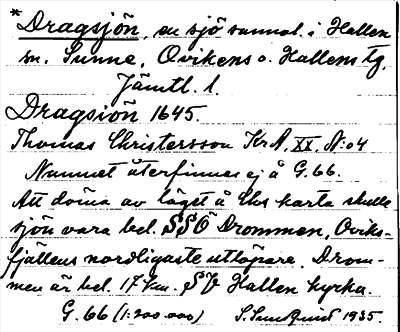 *Dragsjön, en sjö sannol. i Hallen
sn. Sunne, Ovikens o. Hallens tg.
Jämtl. l.
Dragsiön 1645.
Thomas Christersson KrA. XX. N:o 4
Namnet återfinnes ej å G.66.
Att döma av läget å Chs karta skulle
sjön vara bel. SSÖ Drommen, Oviks-
fjällens nordligaste utlöpare. Drom-
men är bel. 17 km. SV Hallen kyrka.
G. 66 (1:200 000) S. Sundquist 1935.